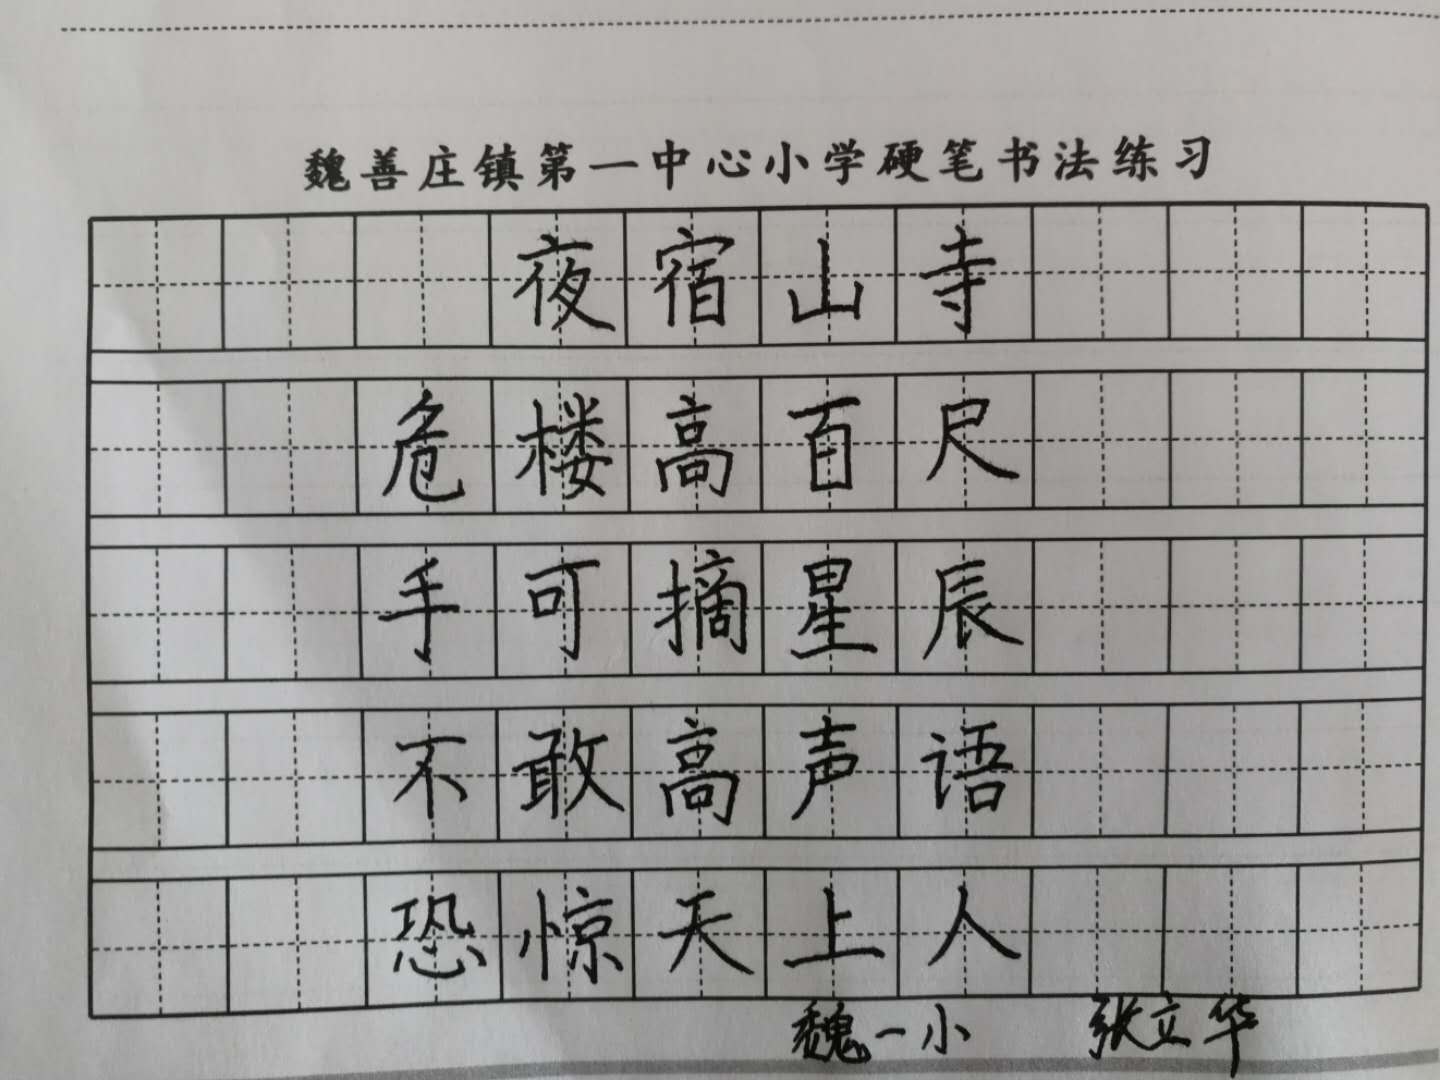 魏善庄镇第一中心小学硬笔书法练习
夜宿山寺
危楼高百尺
手可摘星辰
不敢高声语
恐惊天上人
魏一小 张立华